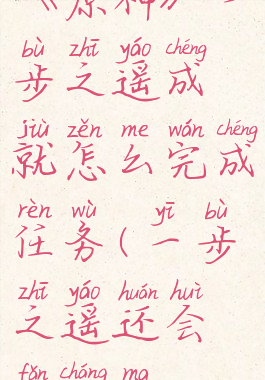 《原神》一
bù zhī yáo chéng
步之遥成
jiù zěn me wán chéng
就怎么完成
rèn wù yī bù
任务(一步
zhī yáo huán huì
之遥还会
fǎn cháng ma